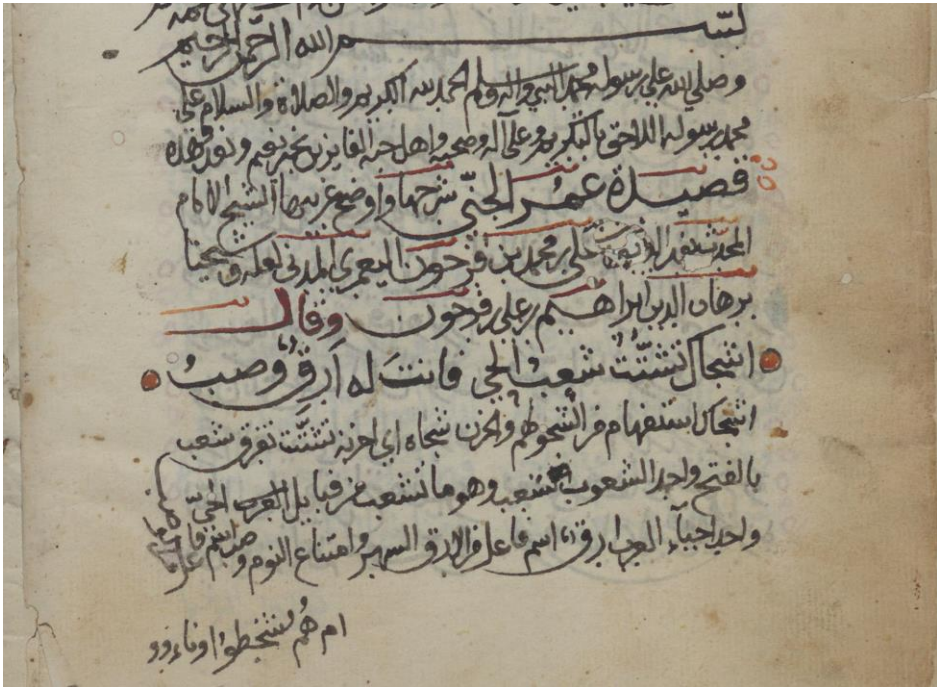 بسم الله الرحمن الرحيم
وصلي الله علي رسوله محمد النبي واله وسلم الحمد لله الكريم والصلاة والسلام علي
محمد رسوله وعلي آله وصحبه واهل الفايزين وبعد فهذه
قصيدة عمر الجني شرحها واوضح غريبها الشيخ الامام
المحدث علي بن محمد بن فرحون اليعمري المدني
برهان الدين ابراهيم بن علي بن فرحون وقال
اشجاك تشتت شعب الحي فانت له ارق وصب
اشجاك استفهام من الشجو الهم والحزن شجاه اي احزنه تشتت تفرق شعب
بالفتح واحد الشعوب وهو ما تشعب من قبايل العرب الحي
واحد احياء العرب ارق اسم فاعل من الارق السهر وامتناع النوم
ام هم